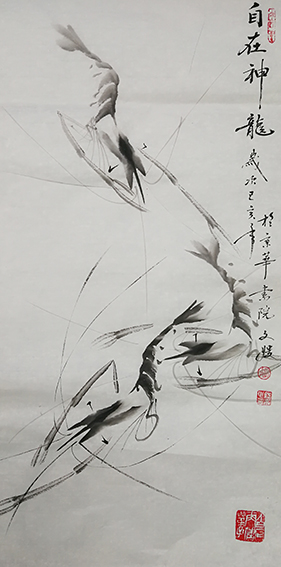 自在神龍
歲次己亥年
於京華素院文